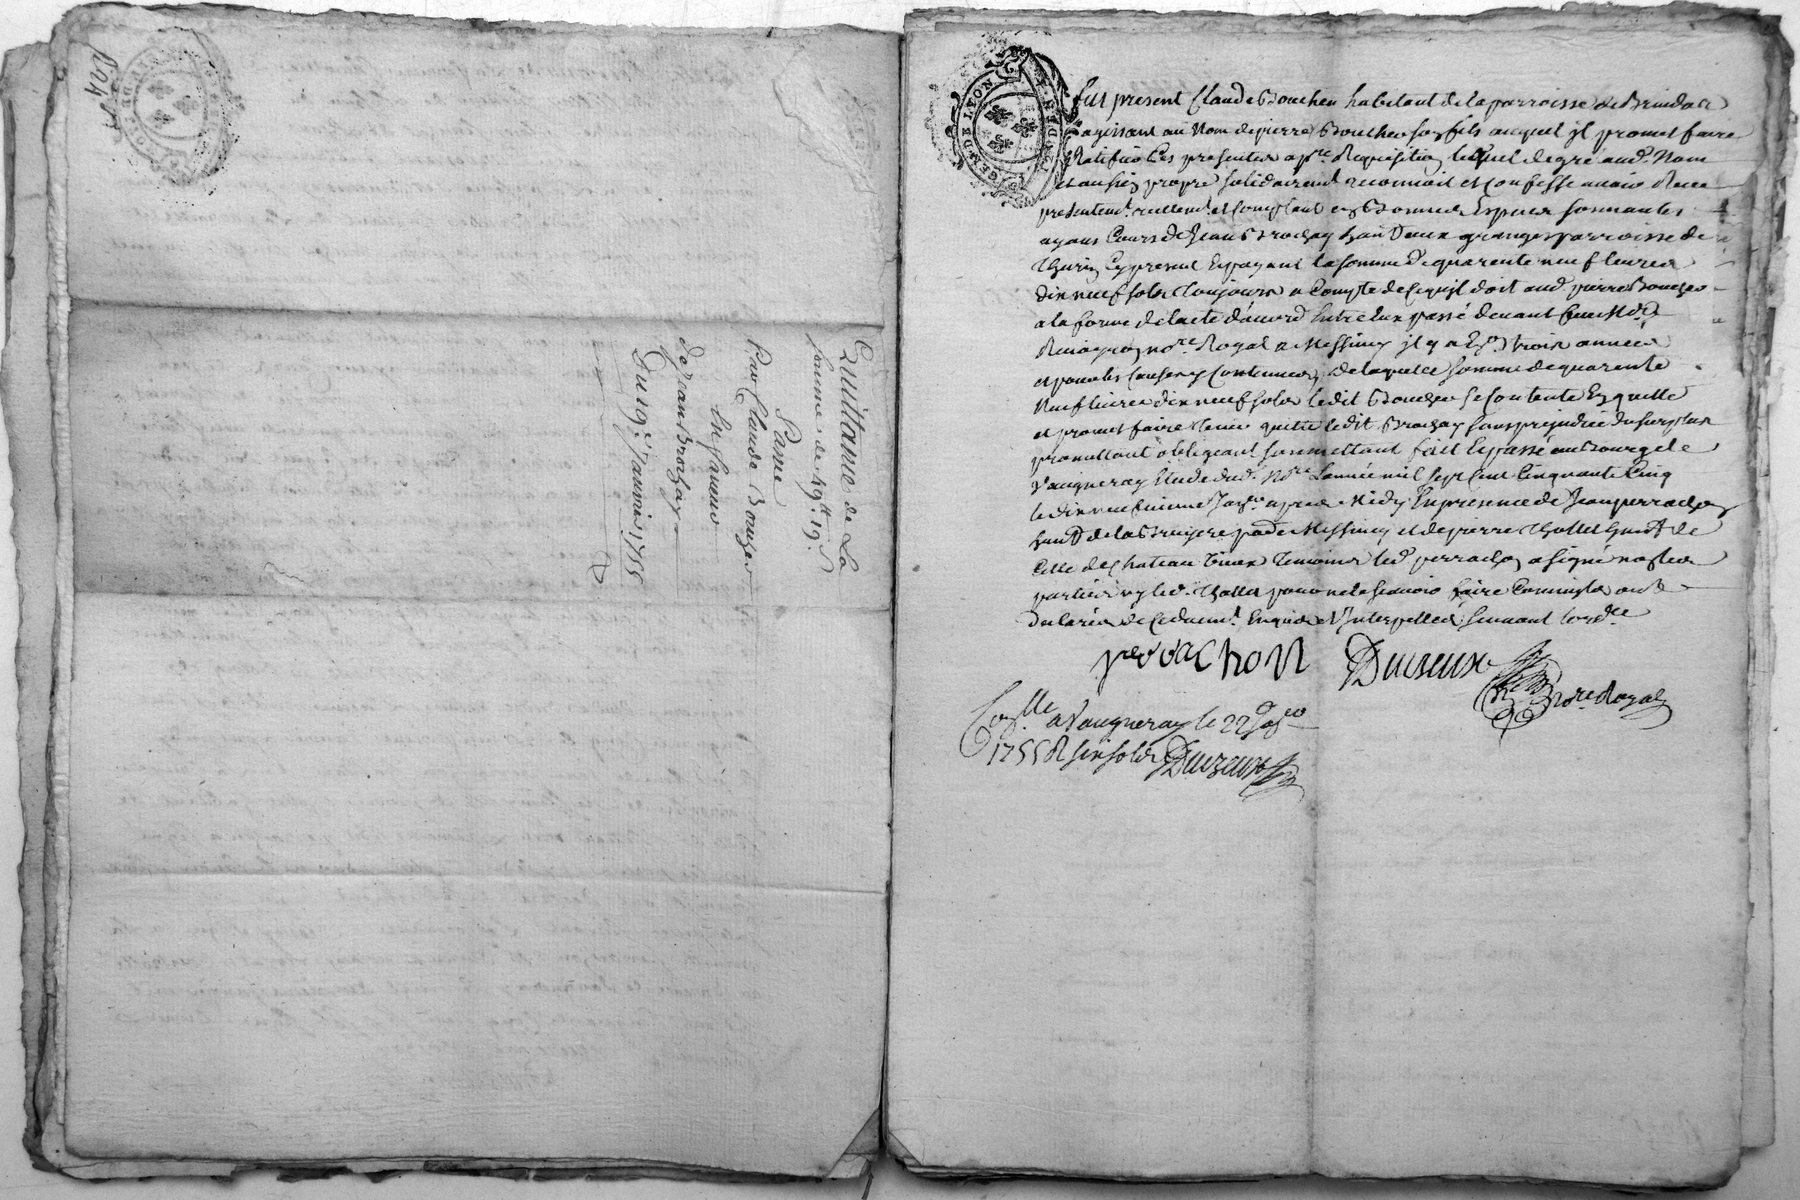 Quittance de La
somme de 49# 19s
Passée
Par Claude Boucher
En faveur
de Jean Brochay
Du 19e Janvier 1755
GEN DE LYON
fut present Claude Boucher habitant de la parroisse de Brindas
agissant au Nom de pierre Boucher son fils auquel jl promet faire
Ratifier Ces presentes a pre Requisition lequel de gré aud. Nom
et au sien propre solidairemt reconnoit et Confesse avoir Receu
presentemt reellemt et Comptant en Bonnes Especes sonnantes
ayans Cours de Jean Brochay hant Deux granges parroisse de
Thurin Cy present Et payant la somme de quarente neuf livres
dix neuf sols toujours a Compte de Ce qu'jl doit aud pierre Boucher
a la forme de lacte d'accord Entre Eux passé devant
nore Royal a Messimy jl y a Trois années
et pour les Causes y Contenues, de laquelle somme de quarente
Neuf livres dix neuf sols ledit Boucher se Contente En quitte
et promet faire tenir quitte ledit Brochay sans prejudice du surplus
promettant obligeant soumettant fait Et passé au Bourg de
Vaugneray Etude dud. Nore Lannée mil sept Cent Cinquante Cinq
le dix neufvieme Janer apres Midy En presence de Jean perrachon
hant de la Bruyere psse de Messimy et de pierre Thollet hant de
Celle de Chateau Vieux Temoins led perrachon a signé non les
parties ny led. Thollet pour ne le scavoir faire Comm'ils ont
declarés de Ce duemt Enquis et Jnterpellés suivant lordce
perrachon Duiseux
nore Royal
Conlle a Vaugneray le 22e Janer
1755 R six sols Duizeux